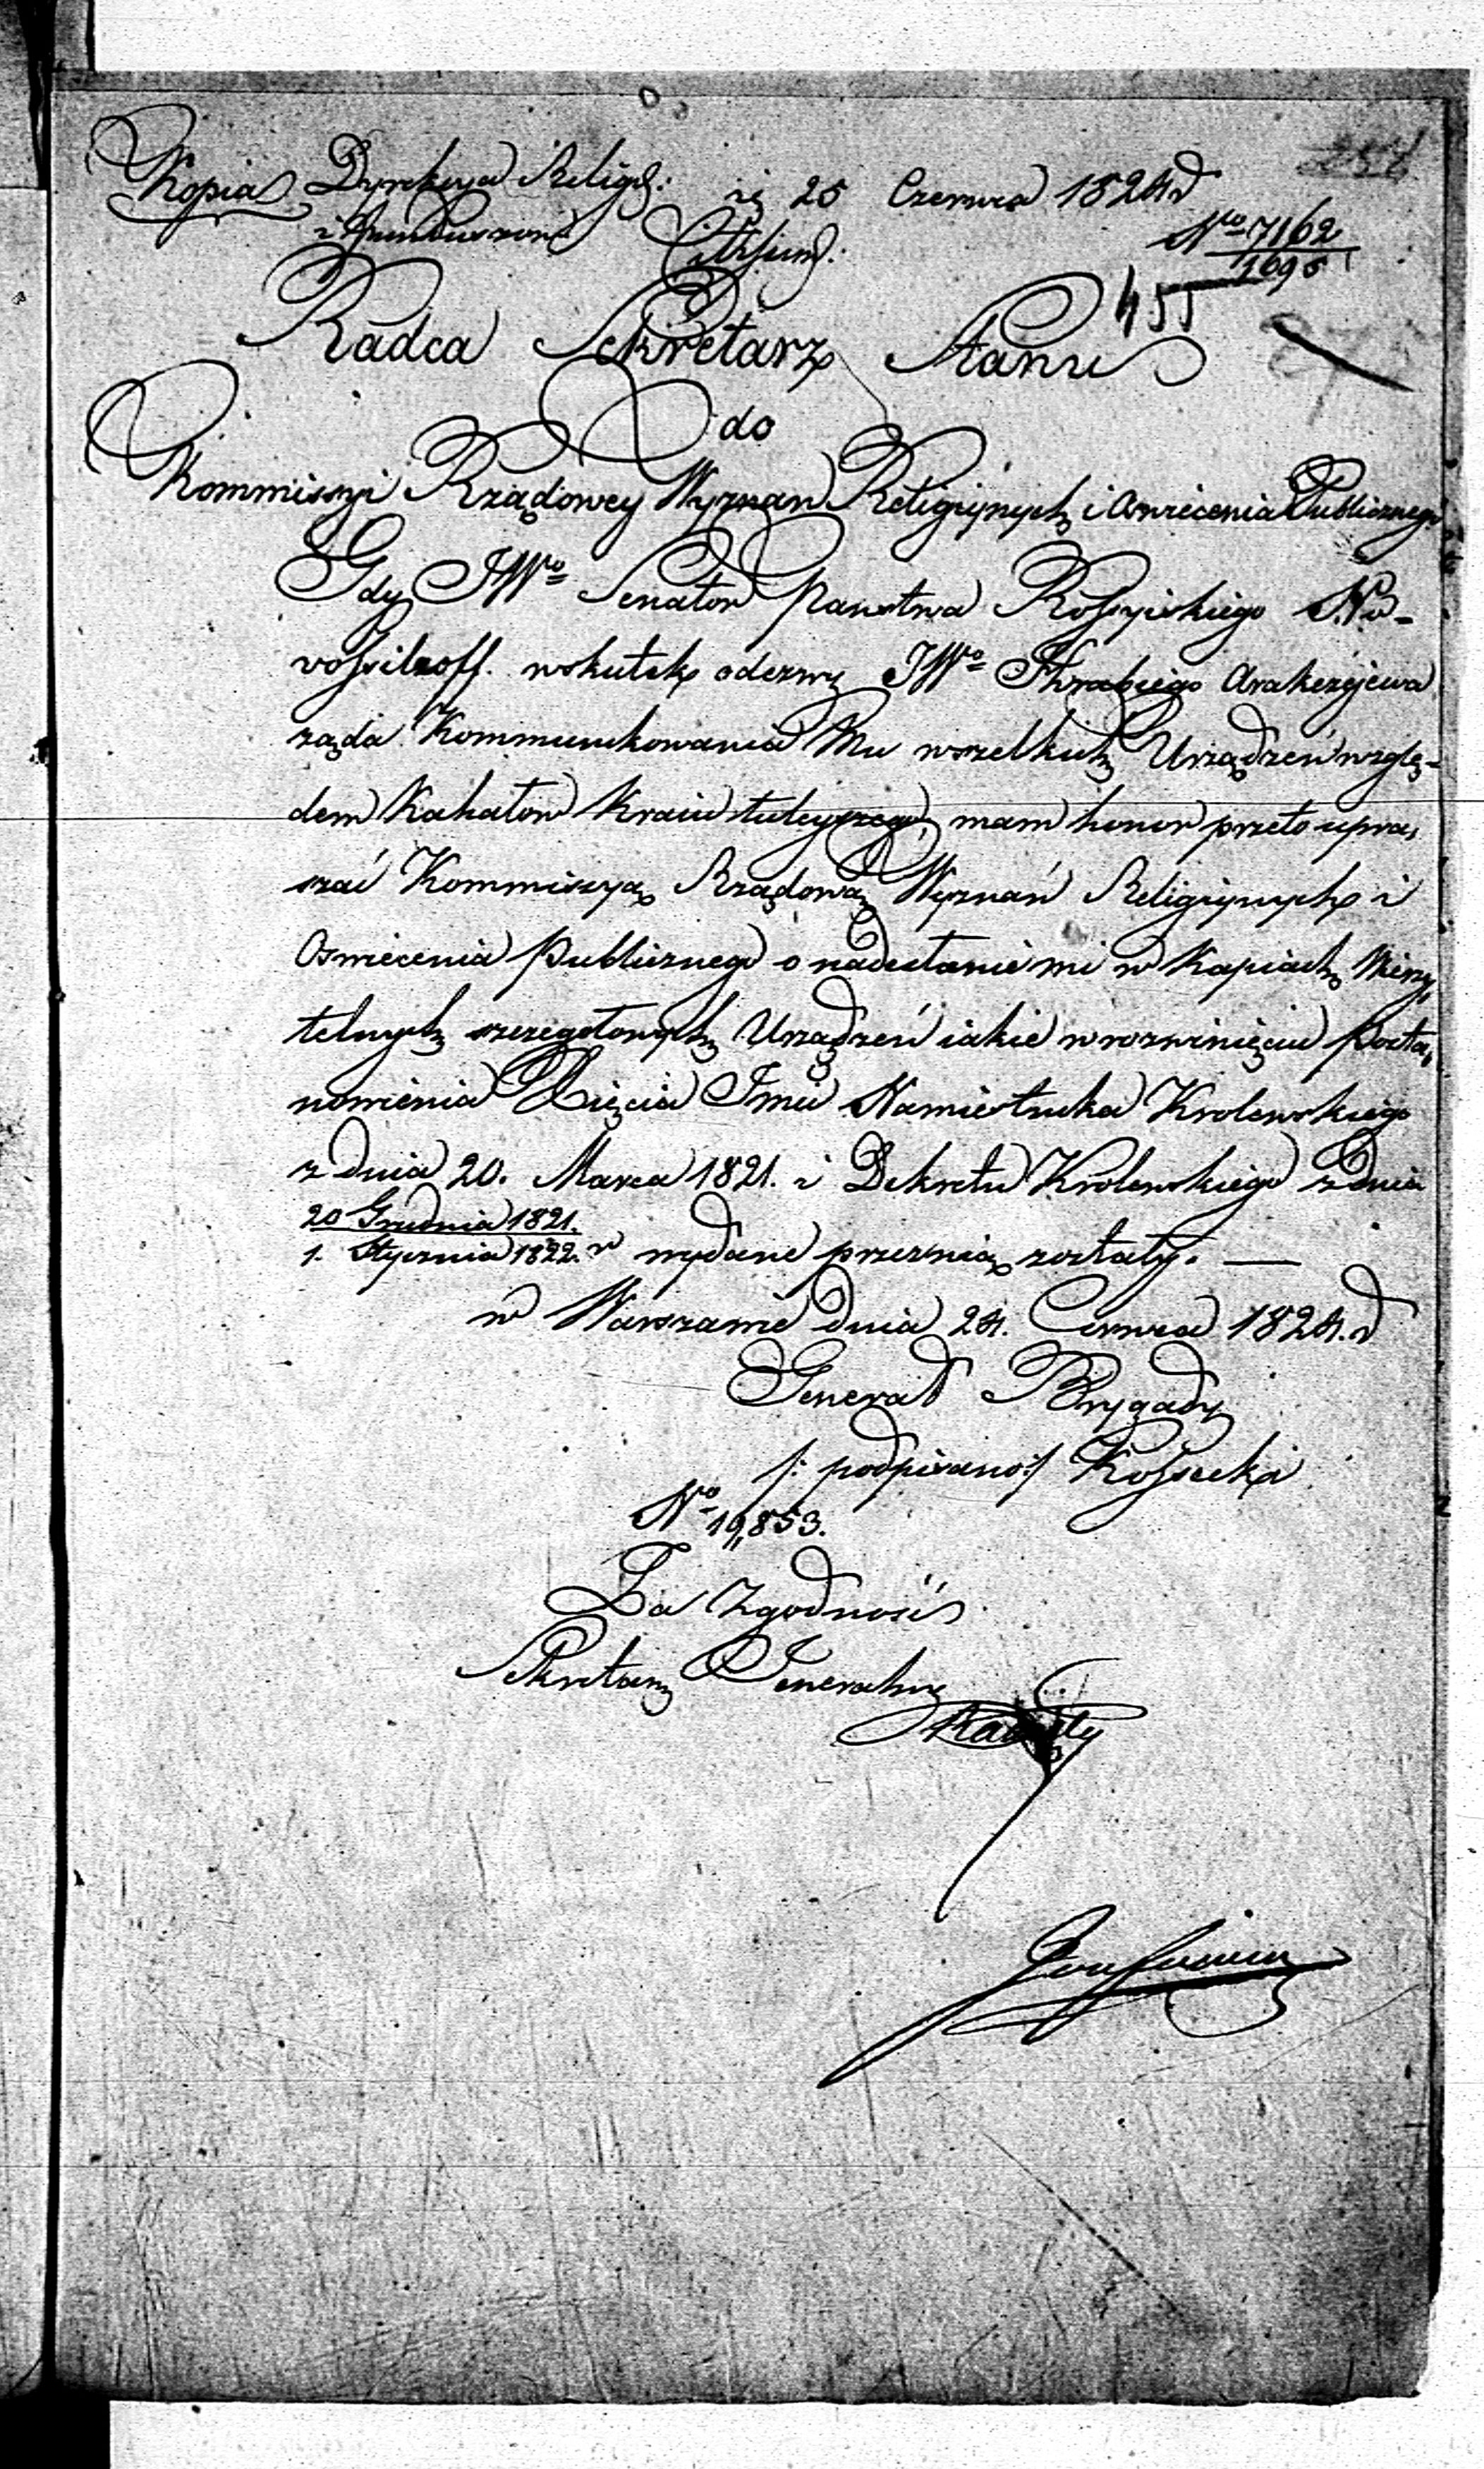 Kopia Dyrekcya Religij: 25 Czerwca 1824 r
i Funduszowa
No 7162
1695
455
Radca Sekretarz Stanu
do
Kommissyi Rządowey Wyznan Religijnych i Oswiecenia Publicznego
Gdy JWo Senator Panstwa Rossyiskiego No-
wossilzoff. wskutek odezwy JWo Hrabiego Arakczejewa
ząda Kommunikowania Mu wszelkich Urządzeń wzglę-
dem Kahałow Kraiu tuteyszego, mam honor przeto upra,
szać Kommissyą Rządową Wyznań Religijnych i
Oswiecenia Publicznego o nadesłanie mi w Kopiach Wierzy,
telnych szczegołowych Urządzeń iakie w rozwinięciu Posta,
nowienia Xięcia Jmci Namiestnika Krolewskiego
z dnia 20. Marca 1821. i Dekretu Krolewskiego z dnia
20 Grudnia 1821.
1. Stycznia 1822. r wydane przez nią zostały. —
w Warszawie dnia 24. Czerwca 1824. r
Generał Brygady
/: podpisano :/ Kossecki
No 19,853.
Za Zgodność
Sekretarz Generalny